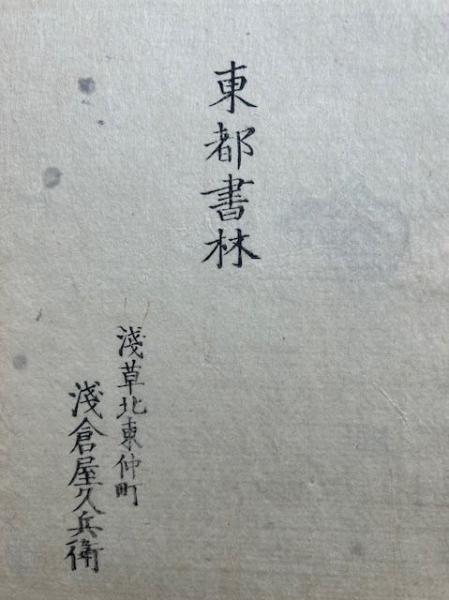 東都書林
淺草北東仲町
淺倉屋久兵衛